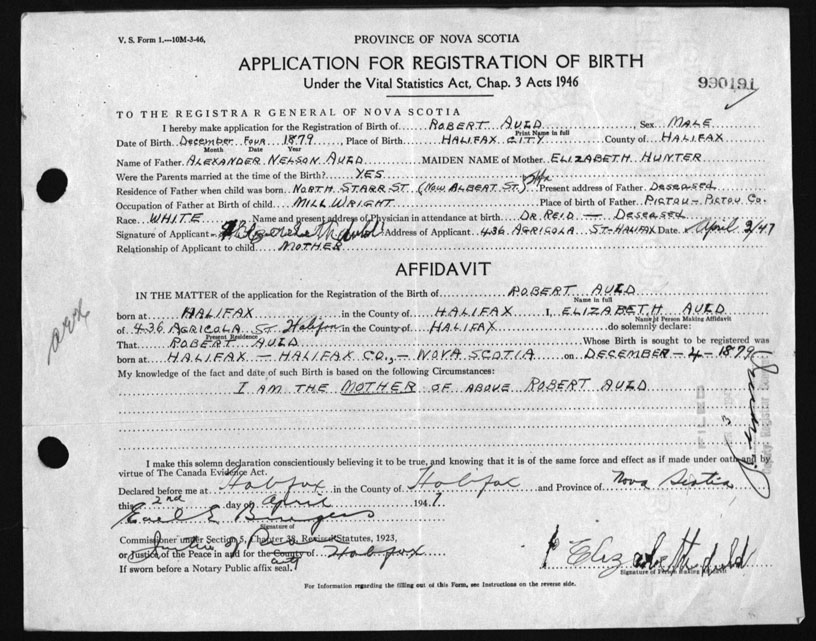 V. S. Form 1.---10M-3-46,
PROVINCE OF NOVA SCOTIA
APPLICATION FOR REGISTRATION OF BIRTH
Under the Vital Statistics Act, Chap. 3 Acts 1946
990191
TO THE REGISTRAR GENERAL OF NOVA SCOTIA
I hereby make application for the Registration of Birth of ROBERT AULD Sex MALE
Print Name in full
Date of Birth December Four 1879 Place of Birth HALIFAX CITY County of HALIFAX
Month Date Year
Name of Father ALEXANDER NELSON AULD MAIDEN NAME of Mother ELIZABETH HUNTER
Were the Parents married at the time of the Birth? YES
Residence of Father when child was born NORTH STARR ST. (NOW ALBERT ST.) Present address of Father DESEASED
Occupation of Father at Birth of child MILL WRIGHT Place of birth of Father PICTOU - PICTOU CO.
Race WHITE Name and present address of Physician in attendance at birth DR. REID - DESEASED
Signature of Applicant Elizabeth Auld Address of Applicant 436 AGRICOLA ST-HALIFAX Date April 2/47
Relationship of Applicant to child MOTHER
AFFIDAVIT
IN THE MATTER of the application for the Registration of the Birth of ROBERT AULD
Name in full
born at HALIFAX in the County of HALIFAX I, ELIZABETH AULD
Name of Person Making Affidavit
of 436 AGRICOLA ST Halifax in the County of HALIFAX do solemnly declare:
Present Residence
That ROBERT AULD Whose Birth is sought to be registered was
born at HALIFAX - HALIFAX CO, - NOVA SCOTIA on DECEMBER - 4 - 1879
My knowledge of the fact and date of such Birth is based on the following Circumstances:
I AM THE MOTHER OF ABOVE ROBERT AULD
I make this solemn declaration conscientiously believing it to be true, and knowing that it is of the same force and effect as if made under oath and by
virtue of The Canada Evidence Act.
Declared before me at Halifax in the County of Halifax and Province of Nova Scotia
this 2nd day of April 1947
Earl E Burgess
Signature of
Commissioner under Section 5, Chapter 38, Revised Statutes, 1923,
or Justice of the Peace in and for the County of Halifax
If sworn before a Notary Public affix seal.
Elizabeth Auld
Signature of Person Making Affidavit
For Information regarding the filling out of this Form, see Instructions on the reverse side.